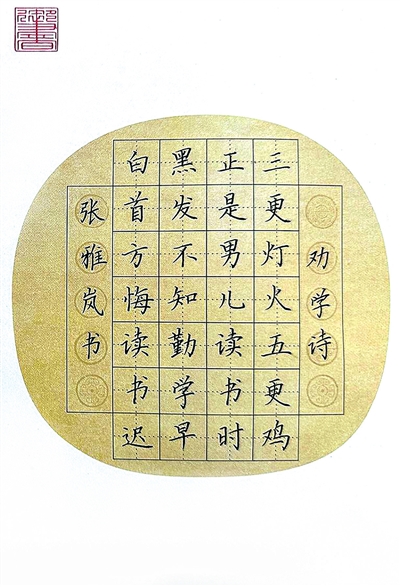 劝学诗
三更灯火五更鸡
正是男儿读书时
黑发不知勤学早
白首方悔读书迟
张雅岚书